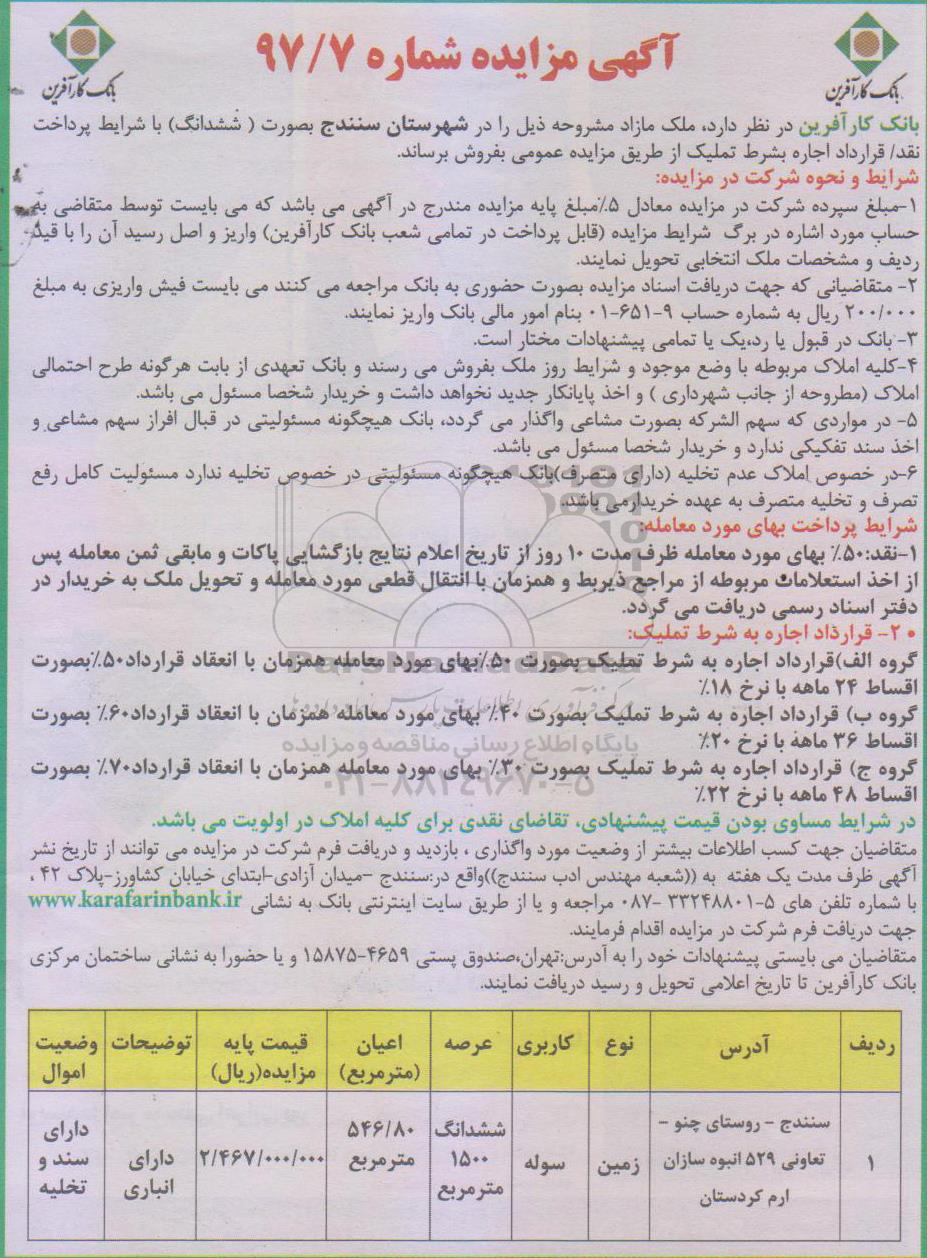 آگهی مزایده شماره ۹۷/۷
بانک کارآفرین
بانک کارآفرین
بانک کارآفرین در نظر دارد، ملک مازاد مشروحه ذیل را در شهرستان سنندج بصورت ( ششدانگ) با شرایط پرداخت
نقد/ قرارداد اجاره بشرط تملیک از طریق مزایده عمومی بفروش برساند.
شرایط و نحوه شرکت در مزایده:
۱-مبلغ سپرده شرکت در مزایده معادل ۵٪مبلغ پایه مزایده مندرج در آگهی می باشد که می بایست توسط متقاضی به
حساب مورد اشاره در برگ شرایط مزایده (قابل پرداخت در تمامی شعب بانک کارآفرین) واریز و اصل رسید آن را با قید
ردیف و مشخصات ملک انتخابی تحویل نمایند.
۲- متقاضیانی که جهت دریافت اسناد مزایده بصورت حضوری به بانک مراجعه می کنند می بایست فیش واریزی به مبلغ
۲۰۰/۰۰۰ ریال به شماره حساب ۹-۶۵۱-۰۱ بنام امور مالی بانک واریز نمایند.
۳- بانک در قبول یا رد،یک یا تمامی پیشنهادات مختار است.
۴-کلیه املاک مربوطه با وضع موجود و شرایط روز ملک بفروش می رسند و بانک تعهدی از بابت هرگونه طرح احتمالی
املاک (مطروحه از جانب شهرداری ) و اخذ پایانکار جدید نخواهد داشت و خریدار شخصا مسئول می باشد.
۵- در مواردی که سهم الشرکه بصورت مشاعی واگذار می گردد، بانک هیچگونه مسئولیتی در قبال افراز سهم مشاعی و
اخذ سند تفکیکی ندارد و خریدار شخصا مسئول می باشد.
۶-در خصوص املاک عدم تخلیه (دارای متصرف)بانک هیچگونه مسئولیتی در خصوص تخلیه ندارد مسئولیت کامل رفع
تصرف و تخلیه متصرف به عهده خریدارمی باشد.
شرایط پرداخت بهای مورد معامله:
۱-نقد:۵۰٪ بهای مورد معامله ظرف مدت ۱۰ روز از تاریخ اعلام نتایج بازگشایی پاکات و مابقی ثمن معامله پس
از اخذ استعلامات مربوطه از مراجع ذیربط و همزمان با انتقال قطعی مورد معامله و تحویل ملک به خریدار در
دفتر اسناد رسمی دریافت می گردد.
• ۲- قرارداد اجاره به شرط تملیک:
گروه الف)قرارداد اجاره به شرط تملیک بصورت ۵۰٪بهای مورد معامله همزمان با انعقاد قرارداد۵۰٪بصورت
اقساط ۲۴ ماهه با نرخ ۱۸٪
گروه ب) قرارداد اجاره به شرط تملیک بصورت ۴۰٪ بهای مورد معامله همزمان با انعقاد قرارداد۶۰٪ بصورت
اقساط ۳۶ ماهه با نرخ ۲۰٪
گروه ج) قرارداد اجاره به شرط تملیک بصورت ۳۰٪ بهای مورد معامله همزمان با انعقاد قرارداد۷۰٪ بصورت
اقساط ۴۸ ماهه با نرخ ۲۲٪
ParsNamadData
پایگاه اطلاع رسانی مناقصه و مزایده
۰۲۱-۸۸۳۴۹۶۷۰-۵
در شرایط مساوی بودن قیمت پیشنهادی، تقاضای نقدی برای کلیه املاک در اولویت می باشد.
متقاضیان جهت کسب اطلاعات بیشتر از وضعیت مورد واگذاری ، بازدید و دریافت فرم شرکت در مزایده می توانند از تاریخ نشر
آگهی ظرف مدت یک هفته به ((شعبه مهندس ادب سنندج))واقع در:سنندج -میدان آزادی-ابتدای خیابان کشاورز-پلاک ۴۲ ،
با شماره تلفن های ۵-۳۳۲۴۸۸۰۱ -۰۸۷ مراجعه و یا از طریق سایت اینترنتی بانک به نشانی www.karafarinbank.ir
جهت دریافت فرم شرکت در مزایده اقدام فرمایند.
متقاضیان می بایستی پیشنهادات خود را به آدرس:تهران،صندوق پستی ۴۶۵۹-۱۵۸۷۵ و یا حضورا به نشانی ساختمان مرکزی
بانک کارآفرین تا تاریخ اعلامی تحویل و رسید دریافت نمایند.
ردیف آدرس نوع کاربری عرصه اعیان (مترمربع) قیمت پایه مزایده(ریال) توضیحات وضعیت اموال
۱ سنندج - روستای چنو - تعاونی ۵۲۹ انبوه سازان ارم کردستان زمین سوله ششدانگ ۱۵۰۰ مترمربع ۵۴۶/۸۰ مترمربع ۲/۴۶۷/۰۰۰/۰۰۰ دارای انباری دارای سند و تخلیه